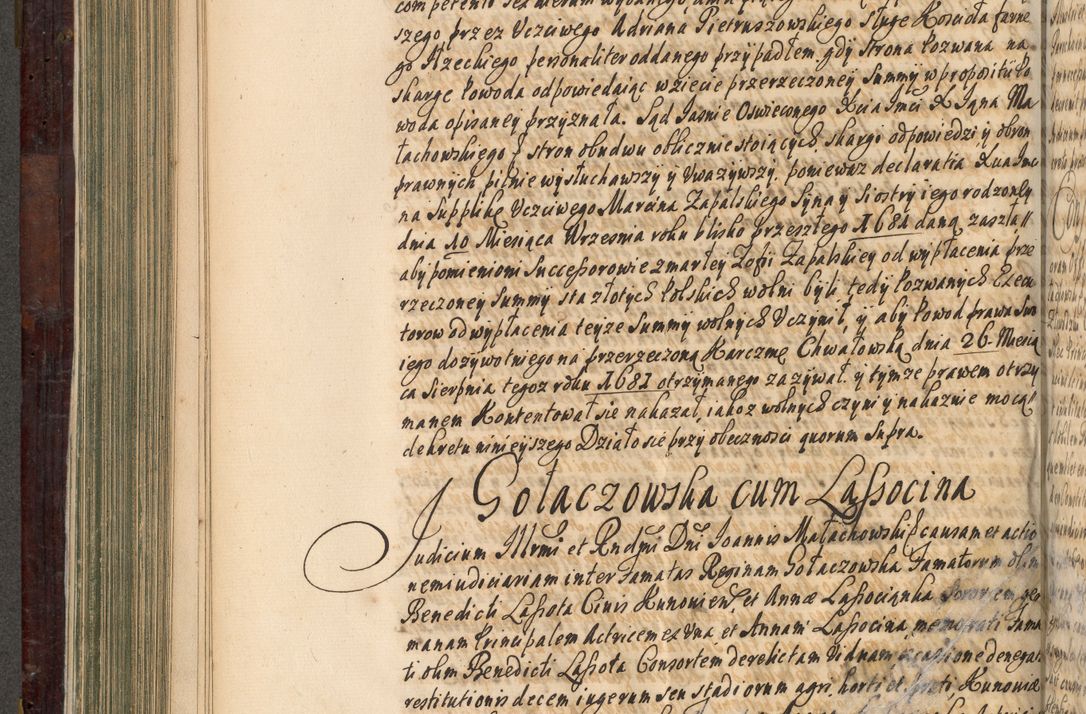 szego przez Uczciwego Adriana Pietruszowskiego sługę Kościoła farne
go Ilzeckiego personaliter oddanego przypadłem, gdy strona pozwana na
skargę Powoda odpowiedaiąc wzięcie przerzeczoney Summy w propositu Po
woda opisaney przyznała. Sąd Jasnie Oswieconego Xcia Jmci X Jana Ma
łachowskiego z stron obudwu oblicznie stoiących, skargi odpowiedzi y obron
prawnych pilnie wysłuchawszy y Uwazywszy, poniewaz declaratia Xcia Jmci
na Supplikę Uczciwego Marcina Zapalskiego Syna y Siostry iego rodzoney
dnia 10 Miesiąca Wrzesnia roku blisko przeszłego 1681 daną zaszła
aby pomienioni Successorowie zmarłey Zofii Zapalskiey od wypłacenia prze
rzeczoney Summy sta złotych Polskich wolni byli, tedy Pozwanych Execu
torow od wypłacenia teyze Summy wolnych Uczynił, y aby Powod prawa Swo
iego dozywotniego na przerzeczoną Karczmę Chwałowską dnia 26. Miesią
ca Sierpnia tegoz roku 1681 otrzymanego zazywał, y tymze prawem otrzy
manem Kontentował się nakazał, iakoz wolnych czyni y nakazuie mocą
dekretu ninieyszego Działo się przy obecznosci quorum Supra.
Gołaczowska cum Lassocina
Judicium Illrmi et Rndmi Dni Joannis Małachowski causam et actio
nem iudiciariam inter Famatas Reginam Gołaczowska Famatorum olim
Benedicti Lassota Civis Kunovien, et Annæ Lassocianka Sororem ger
manam Principalem Actricem ex Una et Annam Lassocina, memorati Fama
ti olim Benedicti Lassota Consortem derelictam Viduam occasione denegatæ
restitutionis decem iugerum seu stadiorum agri, horti et prati Kunoviæ